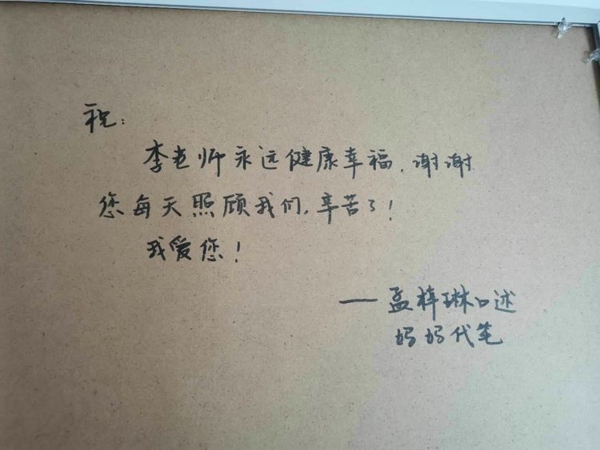 祝:
李老师永远健康幸福,谢谢
您每天照顾我们,辛苦了!
我爱您!
——孟梓琳口述
妈妈代笔